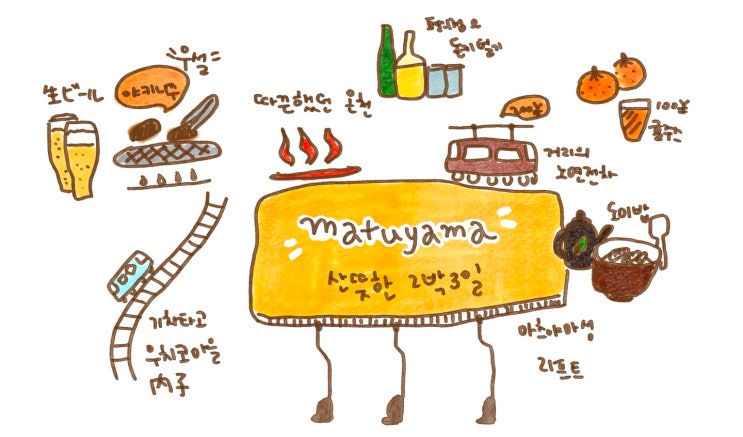 우설
生ビール
야키니쿠
돈키털기
따끈했던 온천
100¥
200¥
거리의
노면전차
도미밥
matuyama
산뜻한 2박3일
기차타고
우치코마을
内子
마츠야마성
리프트